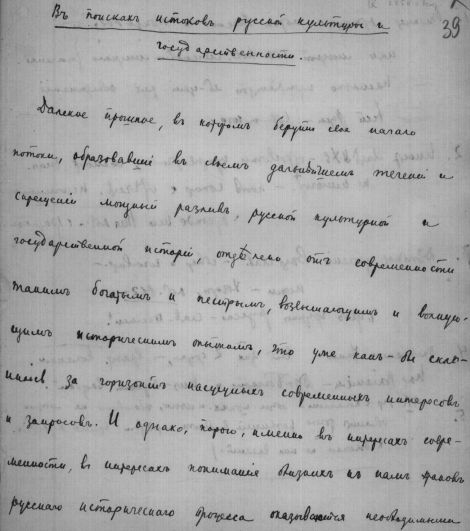 Въ поискахъ истоковъ русской культуры и
государственности.
39
Далекое прошлое, въ которомъ берутъ свое начало
потоки, образовавшіе въ своемъ дальнѣйшемъ теченіи и
скрещеніи мощный разливъ, русской культурной и
государственной исторіи, отдѣлено отъ современности
такимъ богатымъ и пестрымъ, возвышающимъ и волную-
щимъ историческимъ опытомъ, что уже какъ-бы скло-
нилось за горизонтъ насущныхъ современныхъ интересовъ
и запросовъ. И однако, порою, именно въ интересахъ совре-
менности, въ интересахъ пониманія близкихъ къ намъ фазовъ
русскаго историческаго процесса оказываются необходимыми